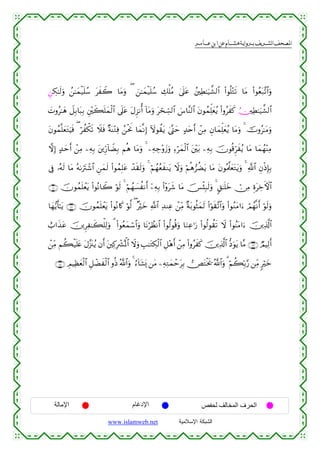 المصحف الشريف برواية هشام عن ابن عامر
وَاتَّبَعُوا مَا تَتْلُوا الشَّيَٰطِينُ عَلَىٰ مُلْكِ سُلَيْمَٰنَ وَمَا كَفَرَ سُلَيْمَٰنُ وَلَٰكِنِ
الشَّيَٰطِينُ كَفَرُوا يُعَلِّمُونَ النَّاسَ السِّحْرَ وَمَا أُنزِلَ عَلَى الْمَلَكَيْنِ بِبَابِلَ هَٰرُوتَ
وَمَٰرُوتَ وَمَا يُعَلِّمَانِ مِنْ أَحَدٍ حَتَّىٰ يَقُولَا إِنَّمَا نَحْنُ فِتْنَةٌ فَلَا تَكْفُرْ فَيَتَعَلَّمُونَ
مِنْهُمَا مَا يُفَرِّقُونَ بِهِ بَيْنَ الْمَرْءِ وَزَوْجِهِ وَمَا هُم بِضَارِّينَ بِهِ مِنْ أَحَدٍ إِلَّا
بِإِذْنِ اللَّهِ وَيَتَعَلَّمُونَ مَا يَضُرُّهُمْ وَلَا يَنفَعُهُمْ وَلَقَدْ عَلِمُوا لَمَنِ اشْتَرَىٰهُ مَا لَهُ فِي
الْآخِرَةِ مِنْ خَلَٰقٍ وَلَبِئْسَ مَا شَرَوْا بِهِ أَنفُسَهُمْ لَوْ كَانُوا يَعْلَمُونَ
وَلَوْ أَنَّهُمْ ءَامَنُوا وَاتَّقَوْا لَمَثُوبَةٌ مِّنْ عِندِ اللَّهِ خَيْرٌ لَّوْ كَانُوا يَعْلَمُونَ يَٰأَيُّهَا
الَّذِينَ ءَامَنُوا لَا تَقُولُوا رَٰعِنَا وَقُولُوا انظُرْنَا وَاسْمَعُوا وَلِلْكَٰفِرِينَ عَذَابٌ
أَلِيمٌ مَّا يَوَدُّ الَّذِينَ كَفَرُوا مِنْ أَهْلِ الْكِتَٰبِ وَلَا الْمُشْرِكِينَ أَن يُنَزَّلَ عَلَيْكُم مِّنْ
خَيْرٍ مِّن رَّبِّكُمْ وَاللَّهُ يَخْتَصُّ بِرَحْمَتِهِ مَن يَشَاءُ وَاللَّهُ ذُو الْفَضْلِ الْعَظِيمِ
الحرف المخالف لحفص الإدغام الإمالة
الشبكة الإسلامية www.islamweb.net